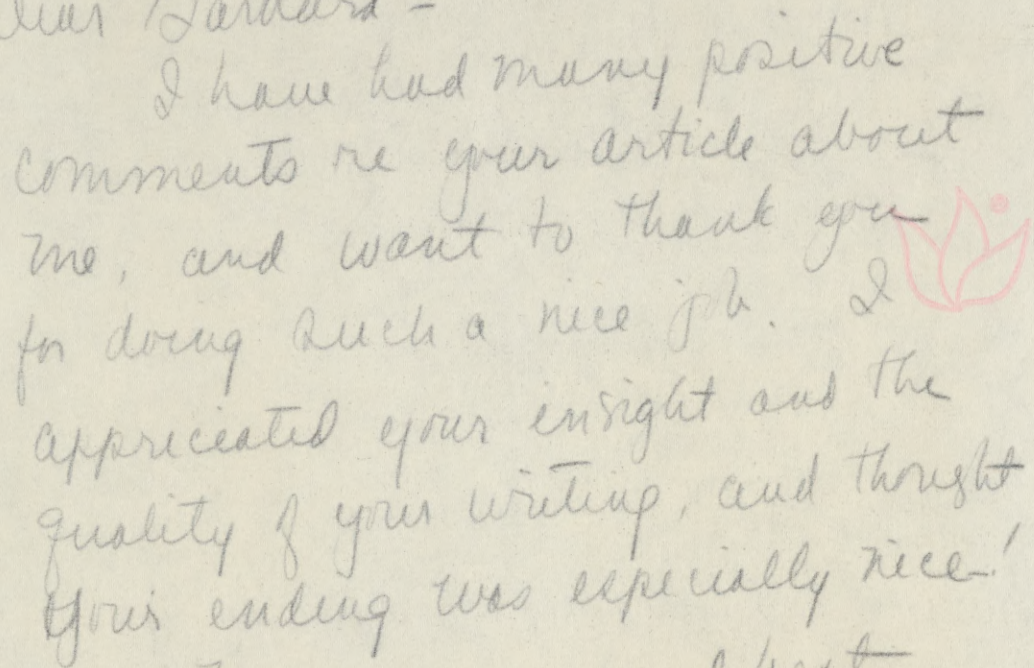 Dear Barbara –
I have had many positive
comments re your article about
me, and want to thank you
for doing such a nice job. I
appreciated your insight and the
quality of your writing, and thought
your ending was especially nice!